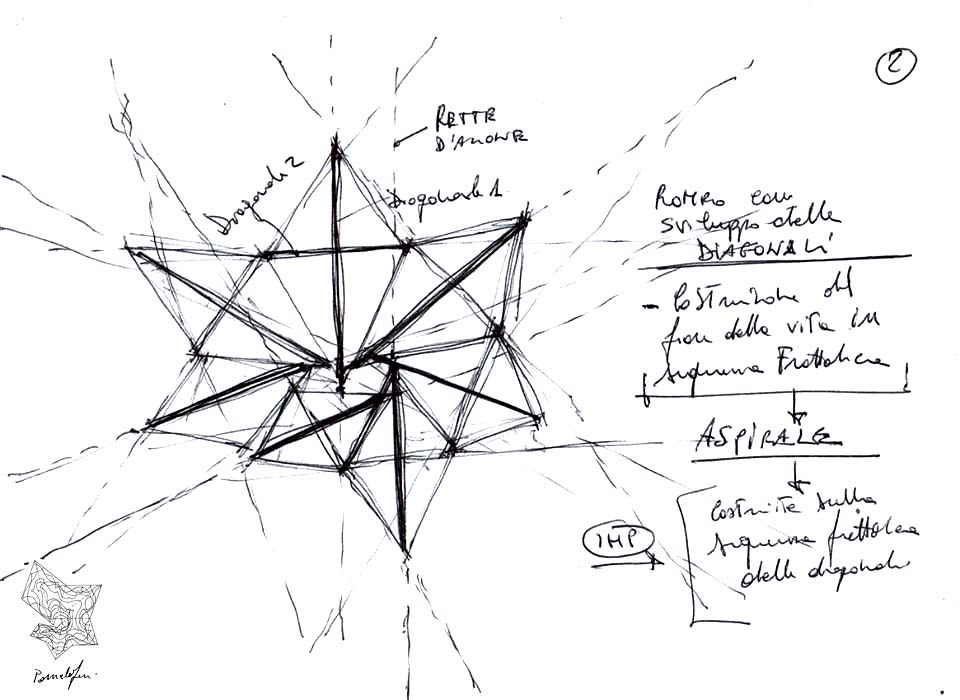 2
RETTE
D'AMORE
Diagonale 2
Diagonale 1
ROMBO con
sviluppo delle
DIAGONALI
- Costruzione del
fiore della vita in
sequenza Frattalica
A SPIRALE
IMP
Costruita sulla
sequenza frattalica
delle diagonali